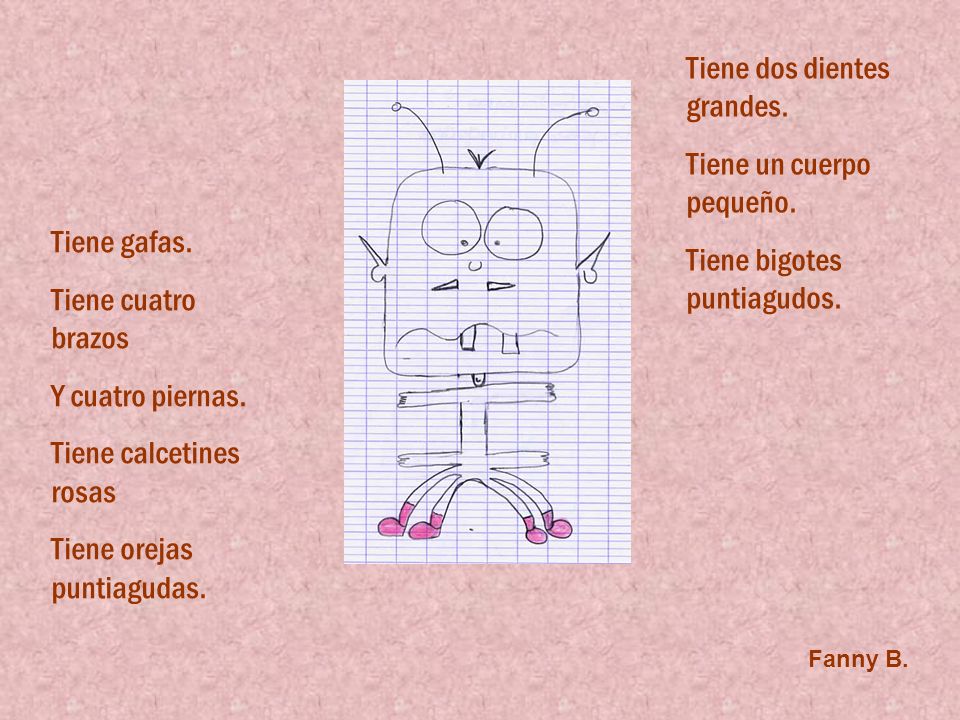 Tiene gafas.
Tiene cuatro
brazos
Y cuatro piernas.
Tiene calcetines
rosas
Tiene orejas
puntiagudas.
Tiene dos dientes
grandes.
Tiene un cuerpo
pequeño.
Tiene bigotes
puntiagudos.
Fanny B.